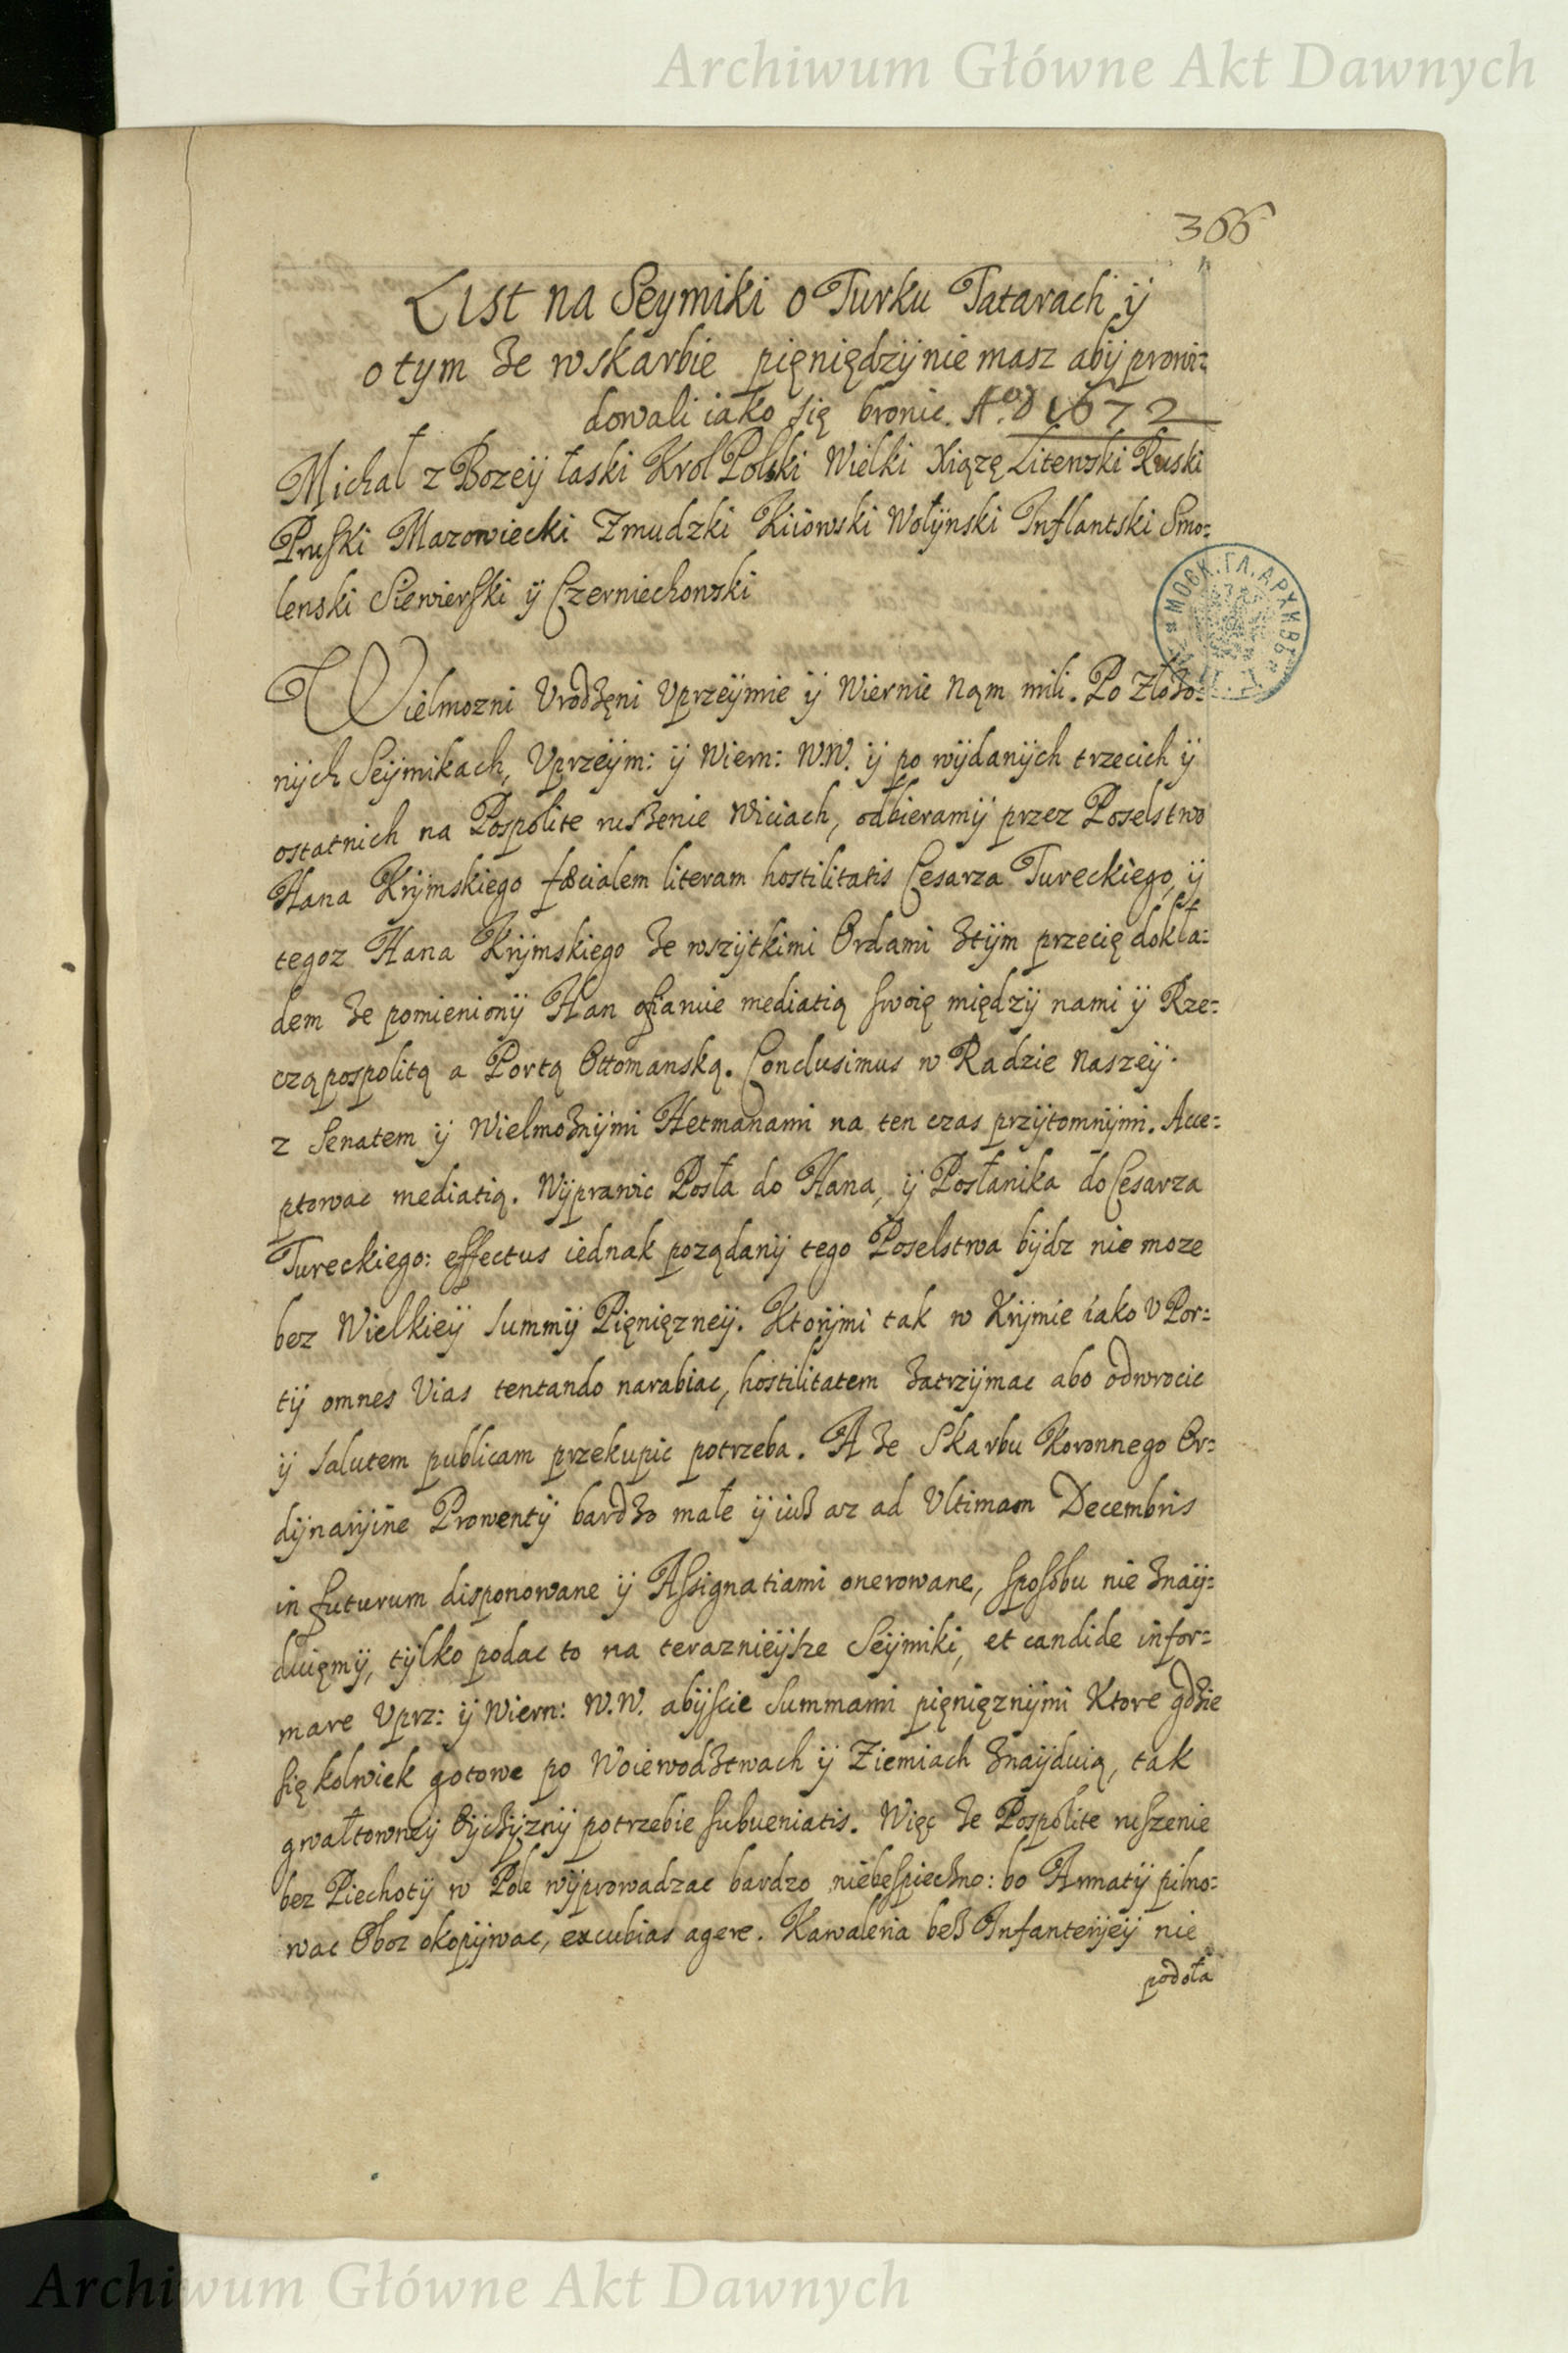 Archiwum Główne Akt Dawnych
366
List na Seymiki o Turku Tatarach ÿ
o tym że w skarbie pięniędzÿ nie masz abÿ prowi=
dowali iako się bronic. Aº. 1672
Michał z Bozeÿ łaski Krol Polski Wielki Xiązę Litewski Ruski
Pruski Mazowiecki Zmudzki Kiiowski Wołÿnski Inflantski Smo=
lenski Siewierski ÿ Czerniechowski
Wielmozni Vrodzęni Vprzeÿmie ÿ Wiernie Nąm mili. Po złozo=
nÿch Seÿmikach, Vprzeÿm: ÿ Wiern: W.W. ÿ po wÿdanÿch trzecich ÿ
ostatnich na Pospolite ruszenie Wiciach, odbieramÿ przez Poselstwo
Hana Krÿmskiego fœcialem literam hostilitatis Cesarza Tureckiego, ÿ
tegoz Hana Krÿmskiego ze wszÿtkimi Ordami ztÿm przecię dokła=
dem ze pomienionÿ Han ofiaruie mediatią swoię międzÿ nami ÿ Rze=
cząpospolitą a Portą Ottomanską. Conclusimus w Radzie Naszeÿ
z Senatem ÿ Wielmoznÿmi Hetmanami na ten czas przÿtomnÿmi. Acce=
ptowac mediatią. Wÿprawic Posła do Hana, ÿ Posłanika do Cesarza
Tureckiego: effectus iednak poządanÿ tego Poselstwa bÿdz nie moze
bez Wielkieÿ Summÿ Pięnięzneÿ. Ktorÿmi tak w Krÿmie iako V Por=
tÿ omnes Vias tentando narabiac, hostilitatem zatrzÿmac abo odwrocic
ÿ Salutem publicam przekupic potrzeba. A ze Skarbu Koronnego Or=
dÿnarÿine Prowentÿ bardzo małe ÿ iuz az ad Vltimam Decembris
in futurum disponowane ÿ Assignatiami onerowane, sposobu nie znaÿ=
duięmÿ, tÿlko podac to na teraznieÿsze Seÿmiki, et candide infor=
mare Vprz: ÿ Wiern: W.W. abÿscie Summami pięnięznÿmi Ktore gdzie
się kolwiek gotowe po Woiewodztwach ÿ Ziemiach znaÿduią, tak
gwałtowneÿ Oÿczÿznÿ potrzebie subueniatis. Więc ze Pospolite ruszenie
bez Piechotÿ w Pole wÿprowadzac bardzo niebespieczno: bo Armatÿ pilno=
wac Oboz okopÿwac, excubias agere. Kawaleria bez Infanterÿeÿ nie
podoła
МОСК. ГЛ. АРХИВЪ
Archiwum Główne Akt Dawnych